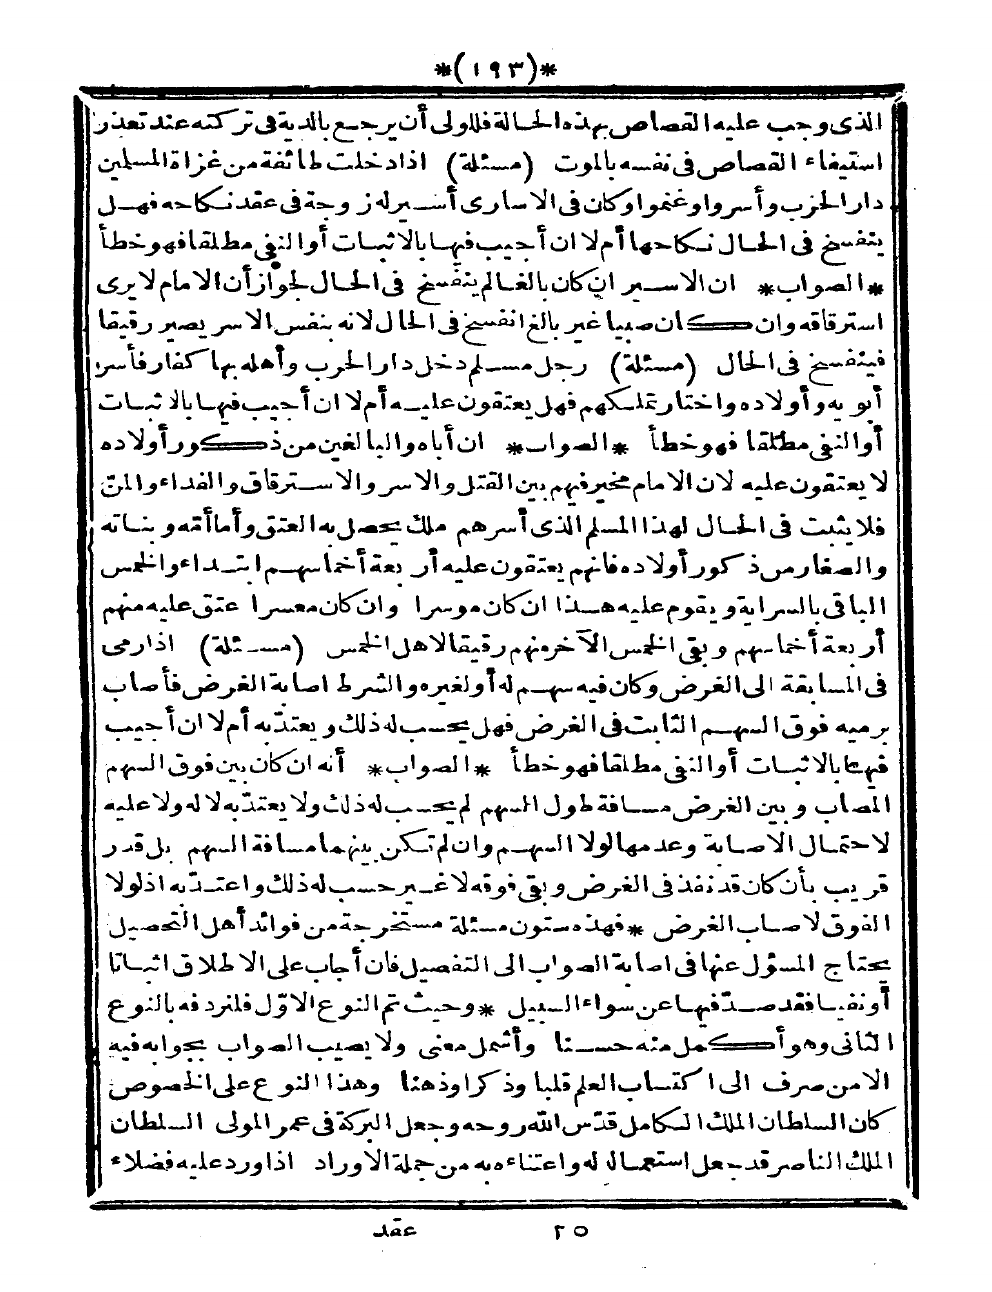 *(١٩٣)*
الذى وجب عليه القصاص بهذه الحالة فللولى أن يرجع بالدية فى تركته عند تعذر
استيفاء القصاص فى نفسه بالموت (مسئلة) اذا دخلت طائفة من غزاة المسلمين
دار الحرب وأسروا وغنموا وكان فى الاسارى أسير له زوجة فى عقد نكاحه فهل
ينفسخ فى الحال نكاحها أم لا ان أجيب فيها بالاثبات أو النفى مطلقا فهو خطأ
*الصواب* ان الاسير ان كان بالغا لم ينفسخ فى الحال لجواز أن الامام لا يرى
استرقاقه وان كان صبيا غير بالغ انفسخ فى الحال لانه بنفس الاسر يصير رقيقا
فينفسخ فى الحال (مسئلة) رجل مسلم دخل دار الحرب وأهله بها كفار فأسر
أبويه وأولاده واختار تملكهم فهل يعتقون عليه أم لا ان أجيب فيها بالاثبات
أو النفى مطلقا فهو خطأ *الصواب* ان أباه والبالغين من ذكور أولاده
لا يعتقون عليه لان الامام مخير فيهم بين القتل والاسر والاسترقاق والفداء والمنّ
فلا يثبت فى الحال لهذا المسلم الذى أسرهم ملك يحصل به العتق وأما أمّه وبناته
والصغار من ذكور أولاده فانهم يعتقون عليه أربعة أخماسهم ابتداء والخمس
الباقى بالسراية ويقوم عليه هذا ان كان موسرا وان كان معسرا عتق عليه منهم
أربعة أخماسهم وبقى الخمس الآخر منهم رقيقا لاهل الخمس (مسئلة) اذا رمى
فى المسابقة الى الغرض وكان فيه سهم له أو لغيره والشرط اصابة الغرض فأصاب
برميه فوق السهم الثابت فى الغرض فهل يحسب له ذلك ويعتدّ به أم لا ان أجيب
فيها بالاثبات أو النفى مطلقا فهو خطأ *الصواب* أنه ان كان بين فوق السهم
المصاب وبين الغرض مسافة طول السهم لم يحسب له ذلك ولا يعتدّ به لا له ولا عليه
لاحتمال الاصابة وعدمها لولا السهم وان لم تكن بينهما مسافة السهم بل قدر
قريب بأن كان قد نفذ فى الغرض وبقى فوقه لا غير حسب له ذلك واعتدّ به اذ لولا
الفوق لاصاب الغرض *فهذه ستون مسئلة مستخرجة من فوائد أهل التحصيل
يحتاج المسؤل عنها فى اصابة الصواب الى التفصيل فان أجاب على الاطلاق اثباتا
أو نفيا فقد صدّ فيها عن سواء السبيل *وحيث تم النوع الاوّل فلنردفه بالنوع
الثانى وهو أكمل منه حسنا وأشمل معنى ولا يصيب الصواب بجوابه فيه
الا من صرف الى اكتساب العلم قلبا وذكرا وذهنا وهذا النوع على الخصوص
كان السلطان الملك الكامل قدّس الله روحه وجعل البركة فى عمر المولى السلطان
الملك الناصر قد جعل استعماله له واعتناءه به من جملة الاوراد اذا ورد عليه فضلاء
٢٥ عقد